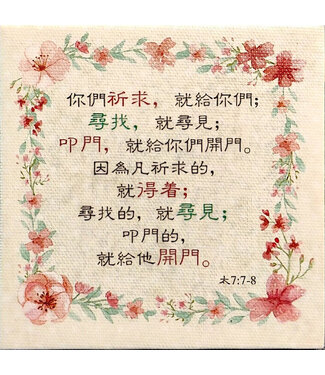 你們祈求，就給你們；
尋找，就尋見；
叩門，就給你們開門。
因為凡祈求的，
就得着；
尋找的，就尋見；
叩門的，
就給他開門。
太7:7-8